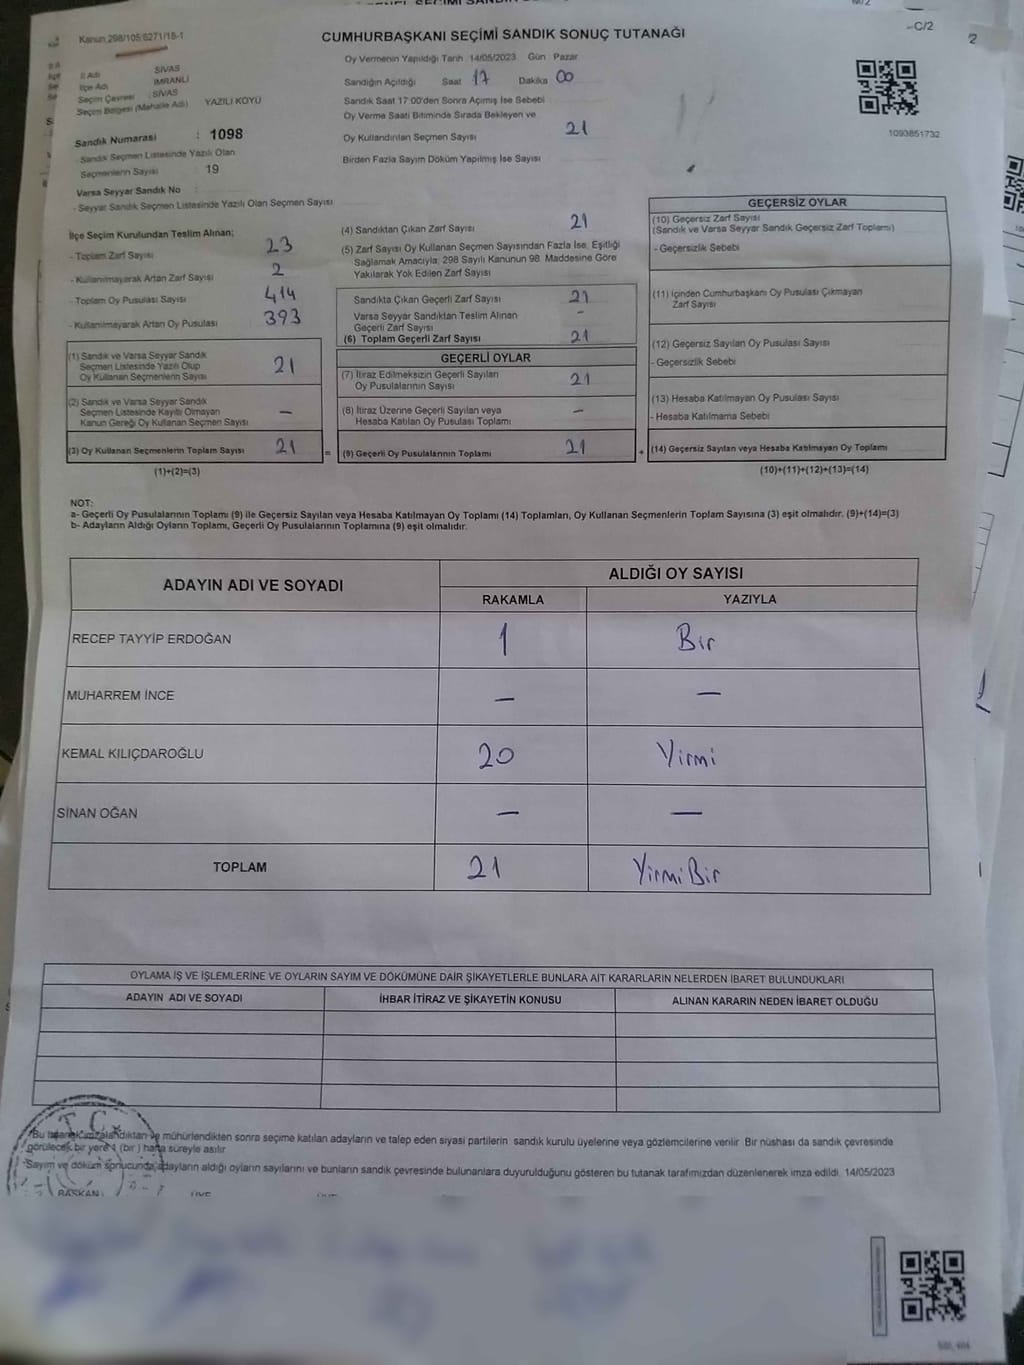 Kanun 298/105/6271/18-1
-C/2
2
CUMHURBAŞKANI SEÇİMİ SANDIK SONUÇ TUTANAĞI
Oy Vermenin Yapıldığı Tarih 14/05/2023 Gün Pazar
İl Adı SİVAS
İlçe Adı İMRANLI
Seçim Çevresi : SİVAS
Seçim Bölgesi (Mahalle Adı) YAZILI KÖYÜ
Sandık Numarası : 1098
- Sandık Seçmen Listesinde Yazılı Olan
Seçmenlerin Sayısı : 19
Varsa Seyyar Sandık No
- Seyyar Sandık Seçmen Listesinde Yazılı Olan Seçmen Sayısı
Sandığın Açıldığı Saat 17 Dakika 00
Sandık Saat 17:00'den Sonra Açımış İse Sebebi
Oy Verme Saati Bitiminde Sırada Bekleyen ve
Oy Kullandırılan Seçmen Sayısı 21
Birden Fazla Sayım Döküm Yapılmış İse Sayısı
1093851732
İlçe Seçim Kurulundan Teslim Alınan;
- Toplam Zarf Sayısı 23
- Kullanılmayarak Artan Zarf Sayısı 2
- Toplam Oy Pusulası Sayısı 414
- Kullanılmayarak Artan Oy Pusulası 393
(1) Sandık ve Varsa Seyyar Sandık
Seçmen Listesinde Yazılı Olup
Oy Kullanan Seçmenlerin Sayısı 21
(2) Sandık ve Varsa Seyyar Sandık
Seçmen Listesinde Kayıtlı Olmayan
Kanun Gereği Oy Kullanan Seçmen Sayısı —
(3) Oy Kullanan Seçmenlerin Toplam Sayısı 21
(1)+(2)=(3)
(4) Sandıktan Çıkan Zarf Sayısı 21
(5) Zarf Sayısı Oy Kullanan Seçmen Sayısından Fazla İse, Eşitliği
Sağlamak Amacıyla; 298 Sayılı Kanunun 98. Maddesine Göre
Yakılarak Yok Edilen Zarf Sayısı
Sandıkta Çıkan Geçerli Zarf Sayısı 21
Varsa Seyyar Sandıktan Teslim Alınan
Geçerli Zarf Sayısı -
(6) Toplam Geçerli Zarf Sayısı 21
GEÇERLİ OYLAR
(7) İtiraz Edilmeksizin Geçerli Sayılan
Oy Pusulalarının Sayısı 21
(8) İtiraz Üzerine Geçerli Sayılan veya
Hesaba Katılan Oy Pusulası Toplamı —
= (9) Geçerli Oy Pusulalarının Toplamı 21 +
GEÇERSİZ OYLAR
(10) Geçersiz Zarf Sayısı
(Sandık ve Varsa Seyyar Sandık Geçersiz Zarf Toplamı)
- Geçersizlik Sebebi
(11) İçinden Cumhurbaşkanı Oy Pusulası Çıkmayan
Zarf Sayısı
(12) Geçersiz Sayılan Oy Pusulası Sayısı
- Geçersizlik Sebebi
(13) Hesaba Katılmayan Oy Pusulası Sayısı
- Hesaba Katılmama Sebebi
(14) Geçersiz Sayılan veya Hesaba Katılmayan Oy Toplamı
(10)+(11)+(12)+(13)=(14)
NOT:
a- Geçerli Oy Pusulalarının Toplamı (9) ile Geçersiz Sayılan veya Hesaba Katılmayan Oy Toplamı (14) Toplamları, Oy Kullanan Seçmenlerin Toplam Sayısına (3) eşit olmalıdır. (9)+(14)=(3)
b- Adayların Aldığı Oyların Toplamı, Geçerli Oy Pusulalarının Toplamına (9) eşit olmalıdır.
ADAYIN ADI VE SOYADI
ALDIĞI OY SAYISI
RAKAMLA YAZIYLA
RECEP TAYYİP ERDOĞAN 1 Bir
MUHARREM İNCE — —
KEMAL KILIÇDAROĞLU 20 Yirmi
SİNAN OĞAN — —
TOPLAM 21 YirmiBir
OYLAMA İŞ VE İŞLEMLERİNE VE OYLARIN SAYIM VE DÖKÜMÜNE DAİR ŞİKAYETLERLE BUNLARA AİT KARARLARIN NELERDEN İBARET BULUNDUKLARI
ADAYIN ADI VE SOYADI İHBAR İTİRAZ VE ŞİKAYETİN KONUSU ALINAN KARARIN NEDEN İBARET OLDUĞU
T.C.
Bu tutanak imzalandıktan ve mühürlendikten sonra seçime katılan adayların ve talep eden siyasi partilerin sandık kurulu üyelerine veya gözlemcilerine verilir. Bir nüshası da sandık çevresinde
görülecek bir yere 1 (bir) hafta süreyle asılır
Sayım ve döküm sonucunda adayların aldığı oyların sayılarını ve bunların sandık çevresinde bulunanlara duyurulduğunu gösteren bu tutanak tarafımızdan düzenlenerek imza edildi. 14/05/2023
BAŞKAN